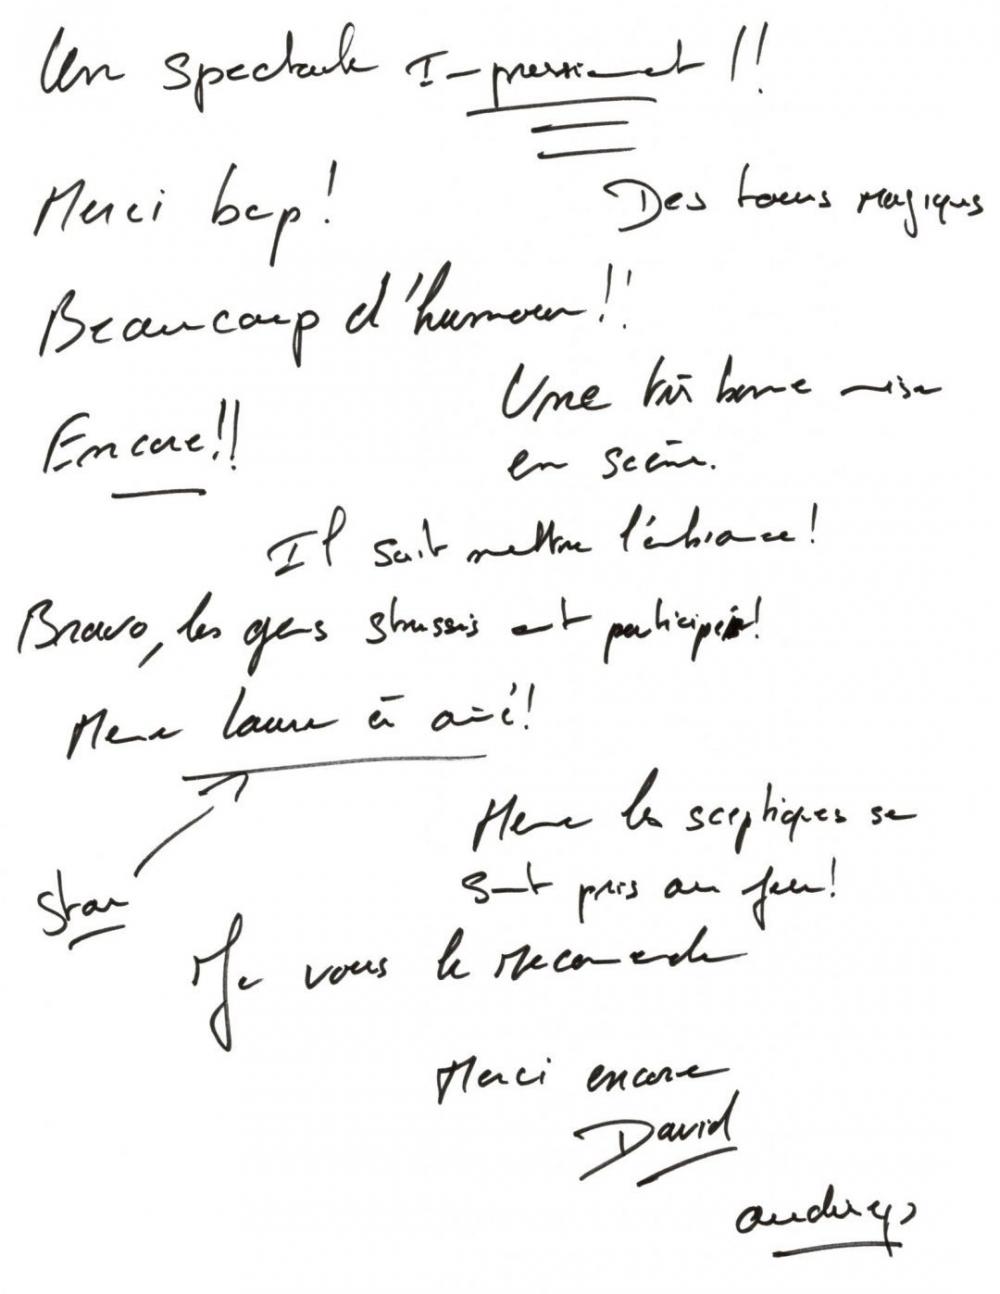 Un spectacle Impressionnant !!
Merci bcp !
Des tours magiques
Beaucoup d'humour !!
Une très bonne mise
en scène.
Encore !!
Il sait mettre l'ambiance !
Bravo, les gens stressés ont participé !
Même Laure a aimé !
Même les sceptiques se
sont pris au jeu !
Star
Je vous le recommande
Merci encore
David